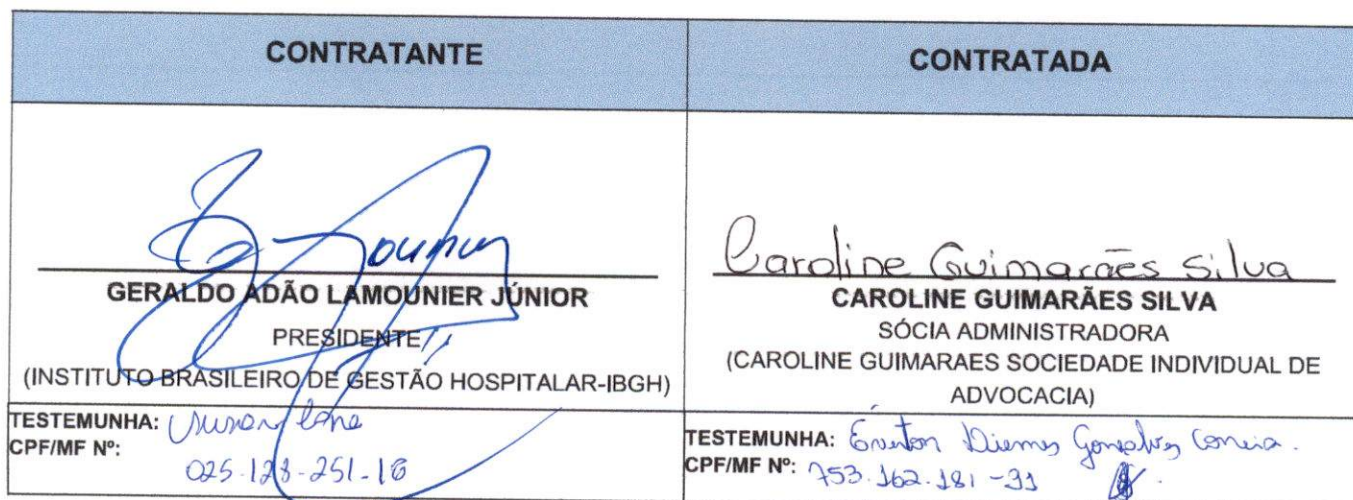 CONTRATANTE
CONTRATADA
GERALDO ADÃO LAMOUNIER JÚNIOR
PRESIDENTE
(INSTITUTO BRASILEIRO DE GESTÃO HOSPITALAR-IBGH)
Caroline Guimarães Silva
CAROLINE GUIMARÃES SILVA
SÓCIA ADMINISTRADORA
(CAROLINE GUIMARAES SOCIEDADE INDIVIDUAL DE
ADVOCACIA)
TESTEMUNHA:
CPF/MF Nº:
025-128-251-16
TESTEMUNHA: Gonçalves Correia.
CPF/MF Nº: 753.162.181-91